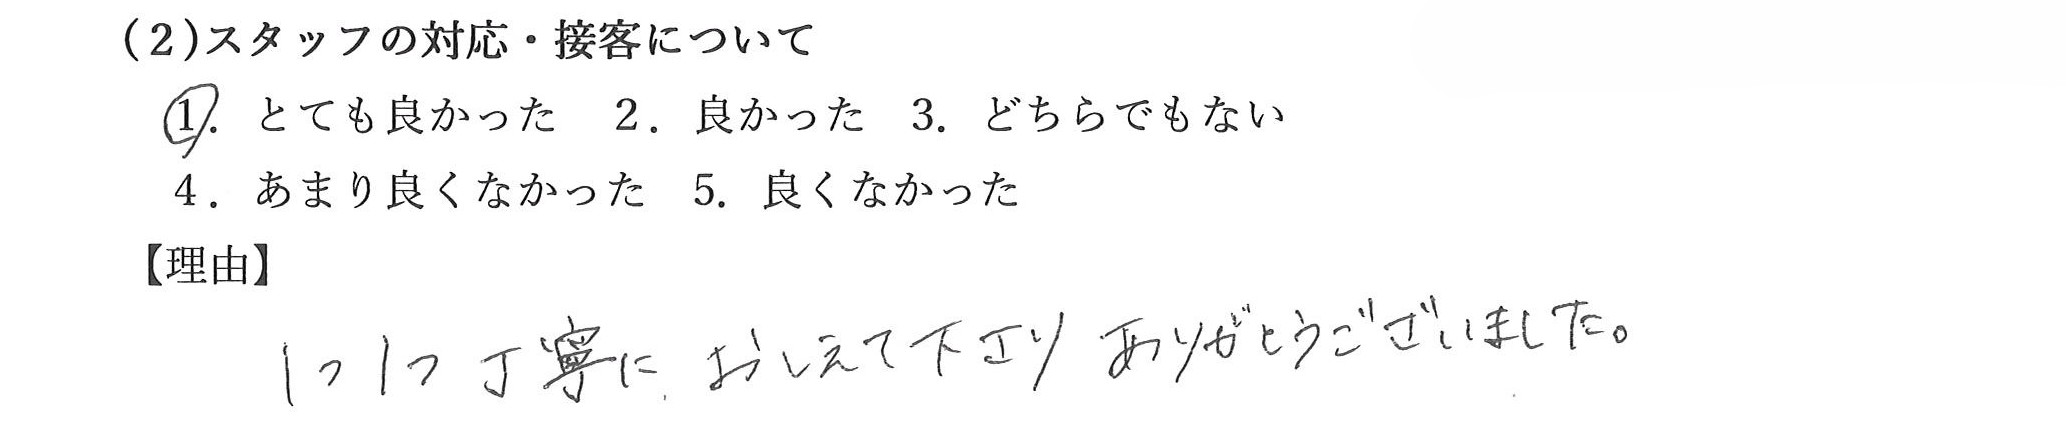 (2)スタッフの対応・接客について
1. とても良かった 2. 良かった 3. どちらでもない
4. あまり良くなかった 5. 良くなかった
【理由】
1つ1つ丁寧に おしえて下さり ありがとうございました。